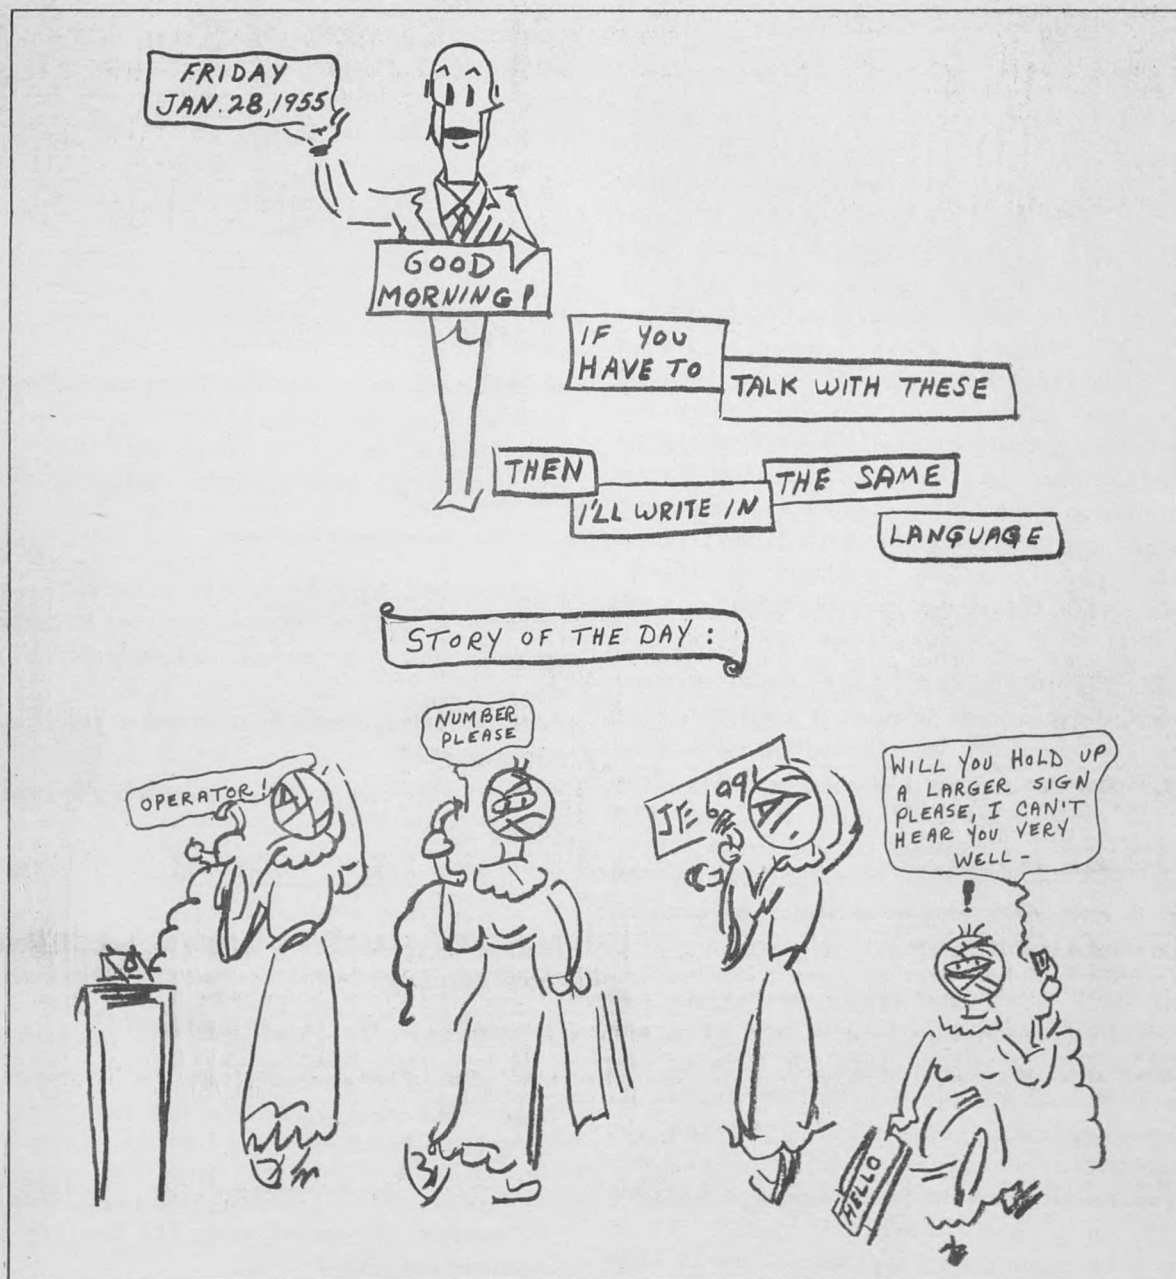 FRIDAY
JAN. 28, 1955
GOOD
MORNING!
IF YOU
HAVE TO
TALK WITH THESE
THEN
I'LL WRITE IN
THE SAME
LANGUAGE
STORY OF THE DAY:
OPERATOR!
NUMBER
PLEASE
JE 699!
WILL YOU HOLD UP
A LARGER SIGN
PLEASE, I CAN'T
HEAR YOU VERY
WELL-
!
HELLO